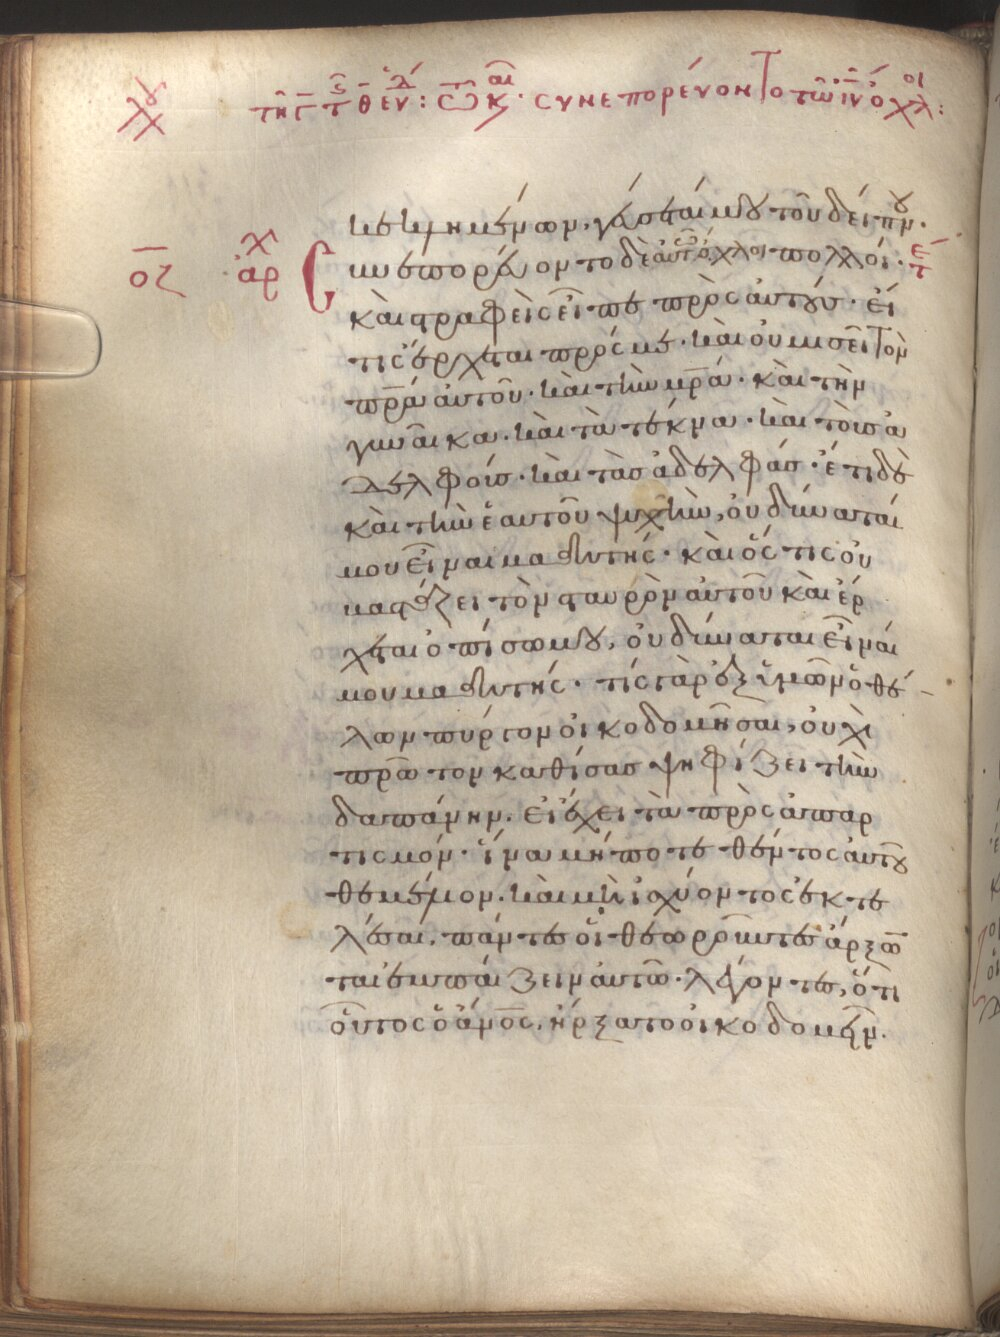 τῆ γ τ θ ἑν : τῶ κ · συνεπορεύοντο τῶ ιυ ὄχλοι :
κεκλημένων, γεύσεταί μου τοῦ δείπνου.
οζ αρχ Συνεπορεύοντο δὲ αὐτῶ ὄχλοι πολλοί·
καὶ στραφεὶς εἶπε πρὸς αὐτούς· εἴ
τις ἔρχεται πρός με· καὶ οὐ μισεῖ τὸν
πρα αὐτοῦ· καὶ τὴν μρα· καὶ τὴν
γυναῖκα· καὶ τὰ τέκνα· καὶ τοὺς ἀ
δελφούς· καὶ τὰς ἀδελφάς· ἔτι δὲ
καὶ τὴν ἑαυτοῦ ψυχὴν, οὐ δύναταί
μου εἶναι μαθητής· καὶ ὅς τις οὐ
βαστάζει τὸν σταυρὸν αὐτοῦ καὶ ἔρ
χεται ὀπίσω μου, οὐ δύναται εἶναί
μου μαθητής· τίς γὰρ ἐξ ὑμῶν ὁ θέ
λων πύργον οἰκοδομῆσαι, οὐχὶ
πρῶτον καθίσας ψηφίζει τὴν
δαπάνην. εἰ ἔχει τὰ πρὸς ἀπαρ
τισμόν· ἵνα μήποτε θέντος αὐτοῦ
θεμέλιον. καὶ μὴ ἰσχύοντος ἐκτε
λέσαι. πάντες οἱ θεωροῦντες ἄρξων
ται ἐμπαίζειν αὐτῶ· λέγοντες, ὅτι
οὗτος ὁ ἄνος, ἤρξατο οἰκοδομεῖν.